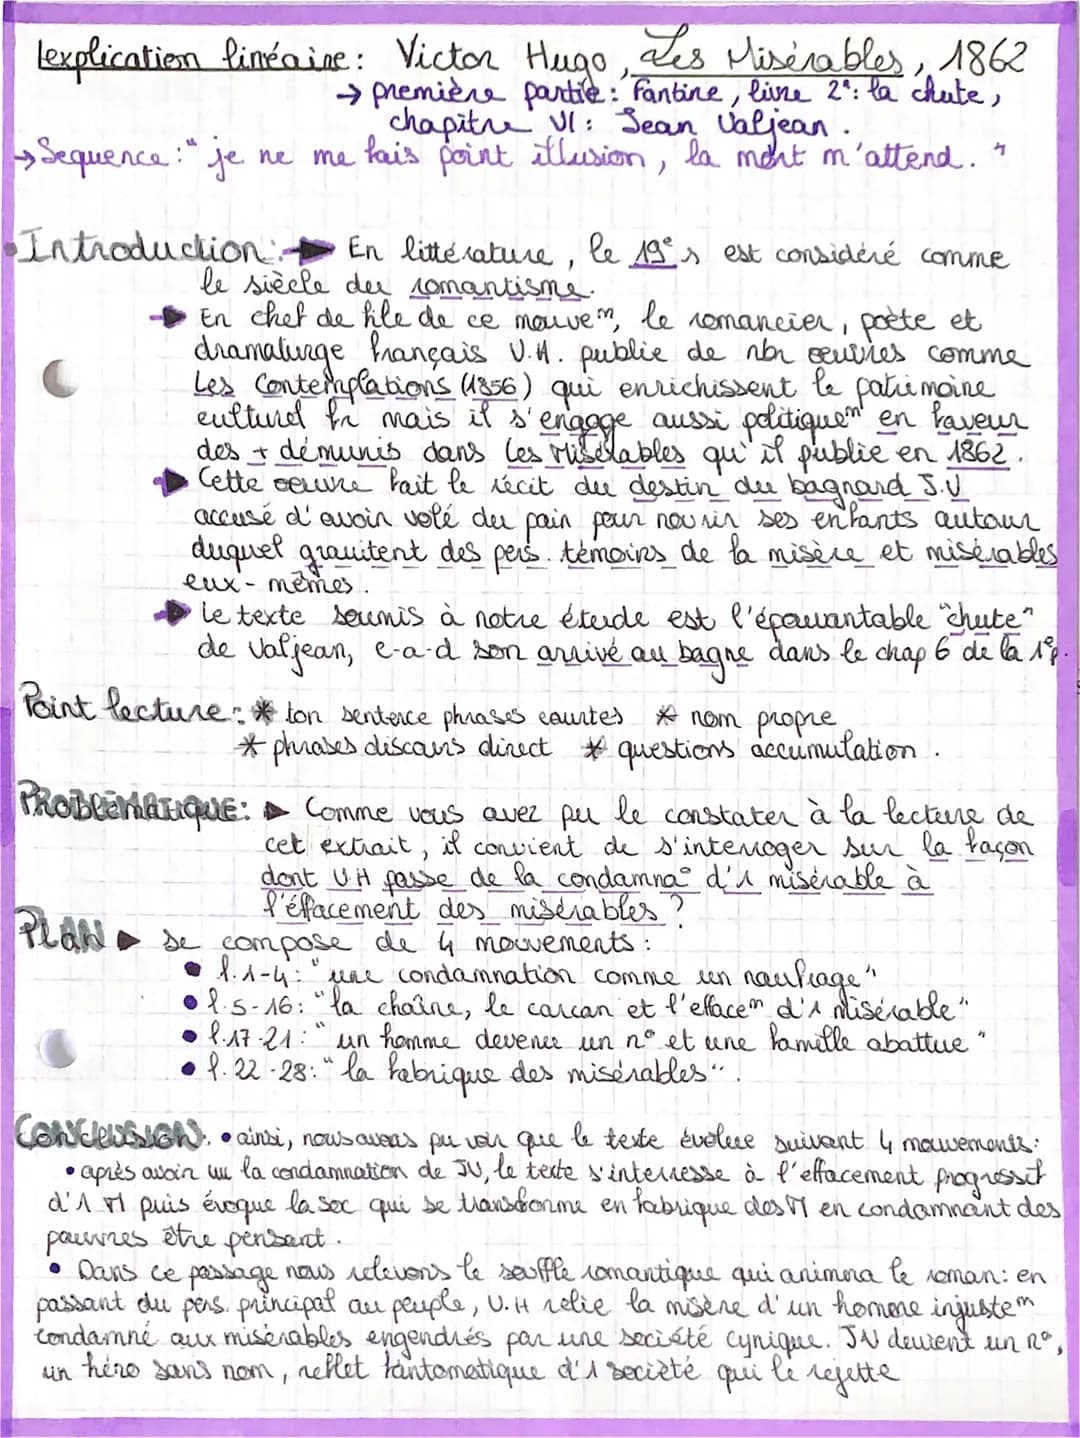 Lexplication linéaire: Victor Hugo, Les Misérables, 1862
→ première partie: Fantine, livre 2e: la chute,
chapitre VI: Jean Valjean.
→ Sequence: "je ne me fais point illusion, la mort m'attend."
• Introduction: En littérature, le 19e s est considéré comme
le siècle du romantisme.
En chef de file de ce mouvem, le romancier, poète et
dramaturge français V.H. publie de nbr œuvres comme
Les Contemplations (1856) qui enrichissent le patrimoine
culturel fr mais il s'engage aussi politiquem en faveur
des + démunis dans Les Misérables qu'il publie en 1862.
Cette oeuvre fait le récit du destin du bagnard J.V
accusé d'avoir volé du pain pour nourir ses enfants autour
duquel gravitent des pers. témoins de la misère et misérables
eux-mêmes.
Le texte soumis à notre étude est l'épouvantable "chute"
de Valjean, c-a-d son arrivé au bagne dans le chap 6 de la 1e p.
Point lecture: * ton sentence phrases courtes * nom propre
* phrases discours direct * questions accumulation.
PROBLÉMATIQUE: ▶ Comme vous avez pu le constater à la lecture de
cet extrait, il convient de s'interroger sur la façon
dont VH passe de la condamna° d'1 misérable à
l'éffacement des misérables ?
PLAN ▶ se compose de 4 mouvements:
• l.1-4: "une condamnation comme un naufrage"
• l.5-16: "la chaîne, le carcan et l'effacem d'1 misérable"
• l.17-21: "un homme devenu un n° et une famille abattue"
• l.22-28: "la fabrique des misérables".
CONCLUSION: • ainsi, nous avons pu voir que le texte évolue suivant 4 mouvements:
• après avoir vu la condamnation de JV, le texte s'interresse à l'effacement progressif
d'1 M puis évoque la soc qui se transforme en fabrique des M en condamnant des
pauvres être pensant.
• Dans ce passage nous relevons le souffle romantique qui anima le roman: en
passant du pers. principal au peuple, V.H relie la misère d'un homme injustem
condamné aux misérables engendrés par une société cynique. JV devient un n°,
un héro sans nom, reflet fantomatique d'1 société qui le rejette